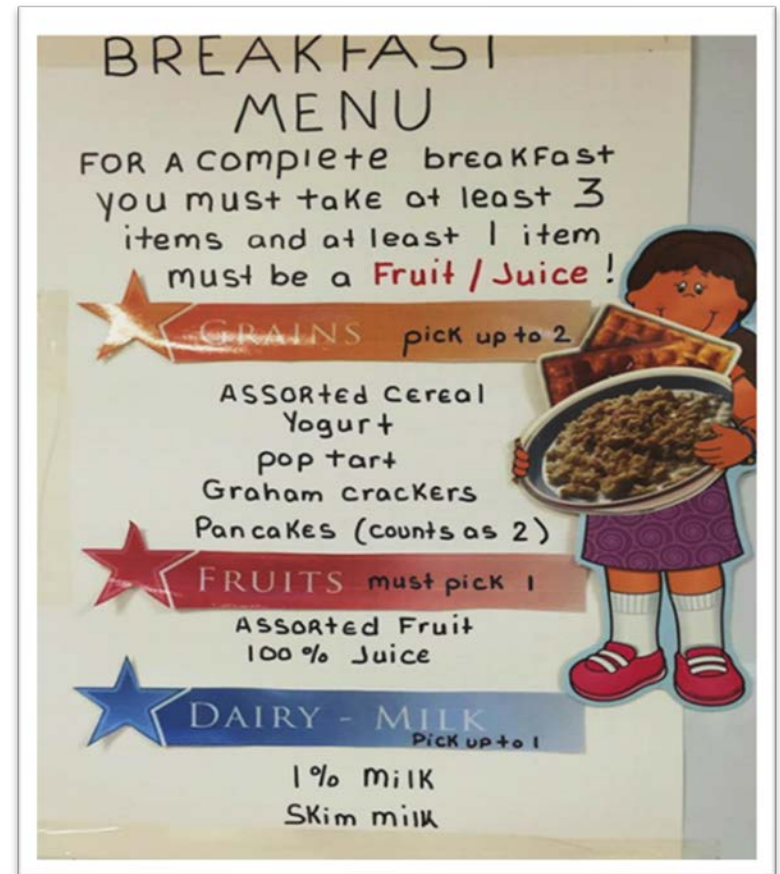 BREAKFAST
MENU
FOR A complete breakfast
you must take at least 3
items and at least 1 item
must be a Fruit / Juice !
GRAINS pick up to 2
ASSORted cereal
Yogurt
pop tart
Graham crackers
Pancakes (counts as 2)
FRUITS must pick 1
ASSORted Fruit
100% Juice
DAIRY - MILK
Pick up to 1
1% milk
Skim milk